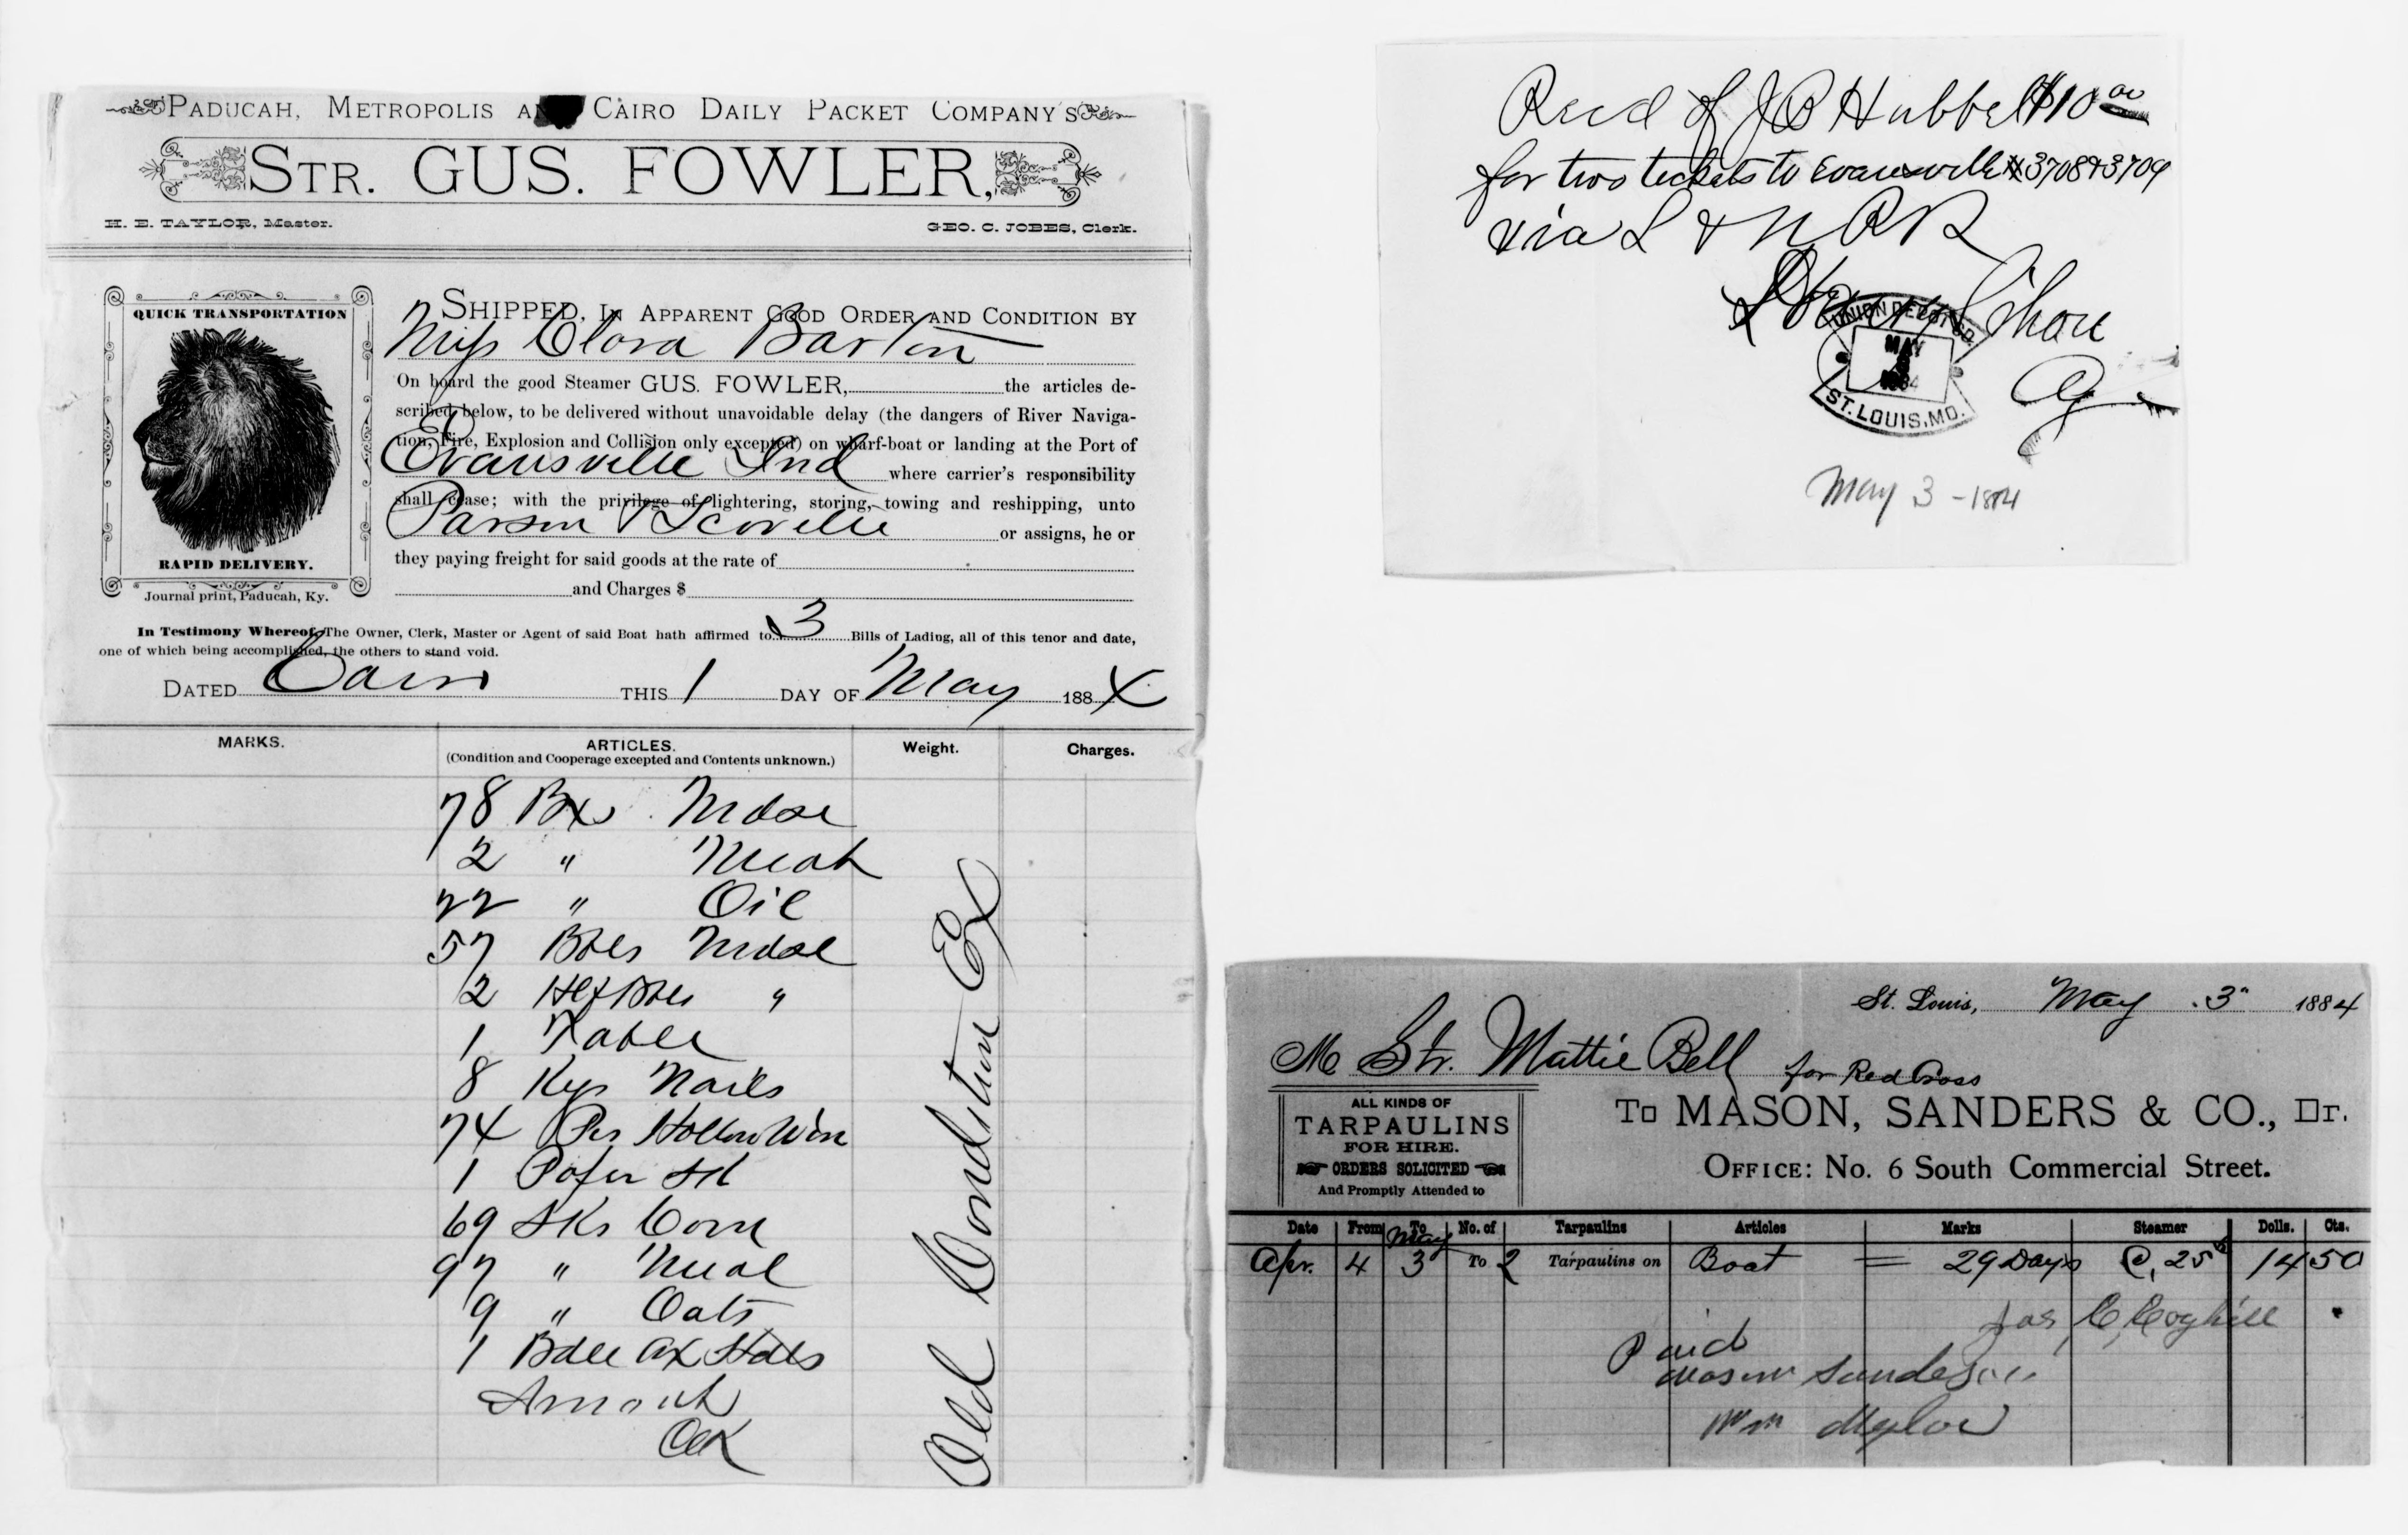 PADUCAH, METROPOLIS AND CAIRO DAILY PACKET COMPANY'S
STR. GUS. FOWLER,
H. E. TAYLOR, Master.
GEO. C. JOBES, Clerk.
QUICK TRANSPORTATION
RAPID DELIVERY.
Journal print, Paducah, Ky.
SHIPPED, In Apparent Good Order and Condition by
Miss Clara Barton
On board the good Steamer GUS. FOWLER, the articles de-
scribed below, to be delivered without unavoidable delay (the dangers of River Naviga-
tion, Fire, Explosion and Collision only excepted) on wharf-boat or landing at the Port of
Evansville Ind where carrier's responsibility
shall cease; with the privilege of lightering, storing, towing and reshipping, unto
Parson & Scoville or assigns, he or
they paying freight for said goods at the rate of
and Charges $
In Testimony Whereof, The Owner, Clerk, Master or Agent of said Boat hath affirmed to 3 Bills of Lading, all of this tenor and date,
one of which being accomplished, the others to stand void.
DATED Cairo THIS 1 DAY OF May 1884
MARKS. ARTICLES. Weight. Charges.
(Condition and Cooperage excepted and Contents unknown.)
78 Bxs Mdse
2 " Meat
22 " Oil
57 Bbls Mdse
2 Hlf Bbls "
1 Table
8 Kgs Nails
74 Pcs Hollow Ware
1
69 Sks Corn
97 " Meal
9 " Oats
1 Bdle Ax Hdls
Old Condition Ex
Recd of J B Hubbell $10 00
for two tickets to Evansville # 3708 & 3709
via L & N R R
UNION DEPOT CO.
MAY
3
1884
ST. LOUIS, MO.
May 3 - 1884
St. Louis, May 3" 1884
M Str. Mattie Bell for Red Cross
To MASON, SANDERS & CO., Dr.
OFFICE: No. 6 South Commercial Street.
ALL KINDS OF
TARPAULINS
FOR HIRE.
ORDERS SOLICITED
And Promptly Attended to
Date From To No. of Tarpaulins Articles Marks Steamer Dolls. Cts.
Apr. 4 May 3 To 2 Tarpaulins on Boat = 29 Days @ 25 14 50
Jas C Coghill
Paid
Mason Sanders
Wm